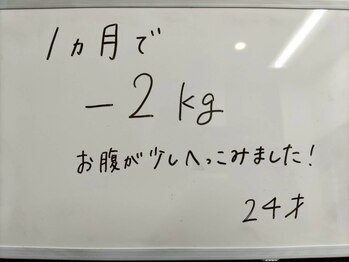 1ヵ月で
-2kg
お腹が少しへっこみました!
24才